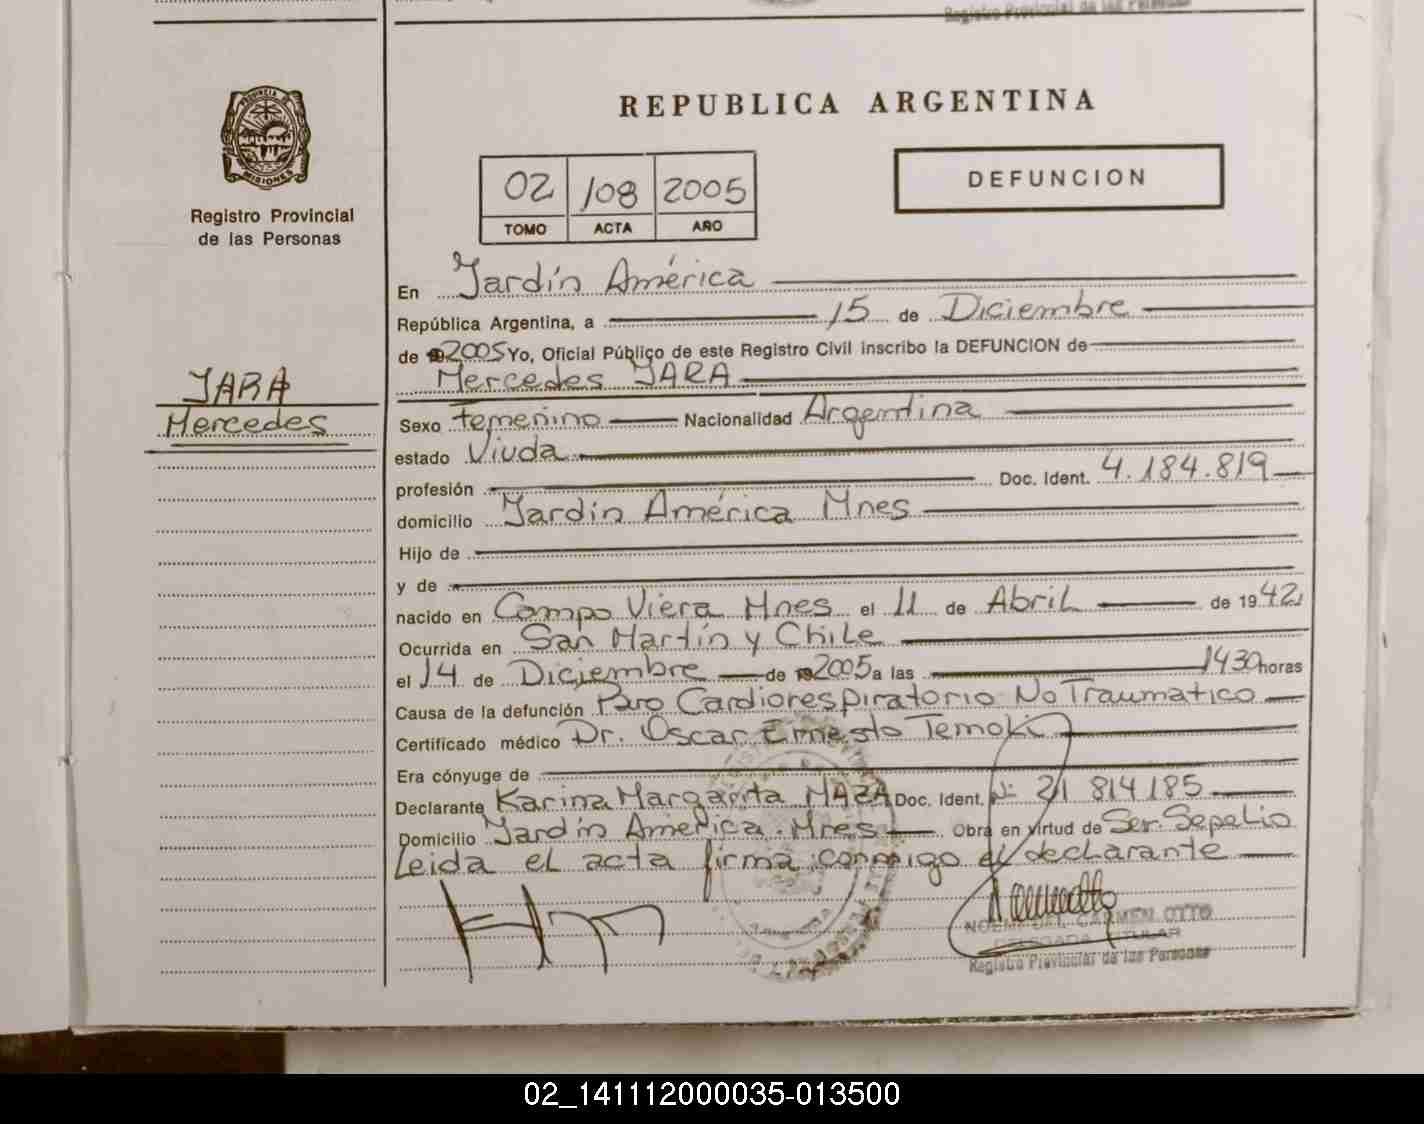 Registro Provincial de las Personas
PROVINCIA DE
MISIONES
Registro Provincial
de las Personas
JARA
Mercedes
REPUBLICA ARGENTINA
02 108 2005
TOMO ACTA AÑO
DEFUNCION
En Jardín América
República Argentina, a 15 de Diciembre
de 2005 Yo, Oficial Público de este Registro Civil inscribo la DEFUNCION de
Mercedes JARA
Sexo Femenino Nacionalidad Argentina
estado Viuda
profesión Doc. Ident. 4.184.819
domicilio Jardín América Mnes
Hijo de
y de
nacido en Campo Viera Mnes el 11 de Abril de 1942
Ocurrida en San Martín y Chile
el 14 de Diciembre de 2005 a las 1430 horas
Causa de la defunción Paro Cardiorespiratorio No Traumatico
Certificado médico Dr. Oscar Ernesto Temoki
Era cónyuge de
Declarante Karina Margarita MAZA Doc. Ident. Nº 21 814185
Domicilio Jardín América. Mnes Obra en virtud de Ser. Sepelio
Leida el acta firma conmigo el declarante
NOEMI DEL CARMEN OTTO
DELEGADA TITULAR
Registro Provincial de las Personas
02_141112000035-013500